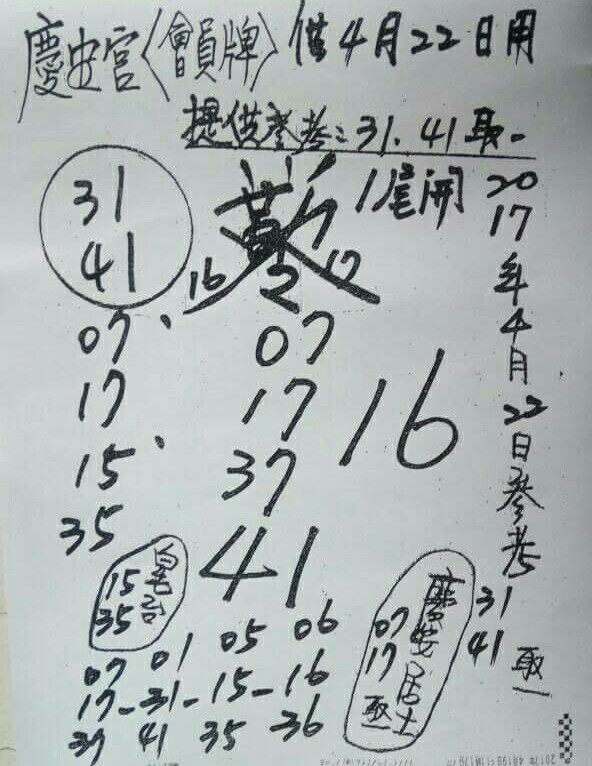 慶安宮〈會員牌〉供4月22日用
提供參考:31.41取一
1尾開
31
41
16 2 17
07
17
15
35
07
17
37
41
16
2017年4月22日參考
31
41
取一
15
35
慶安居士
07
17
取一
07 01 05 06
17-31-15-16
37 41 35 36